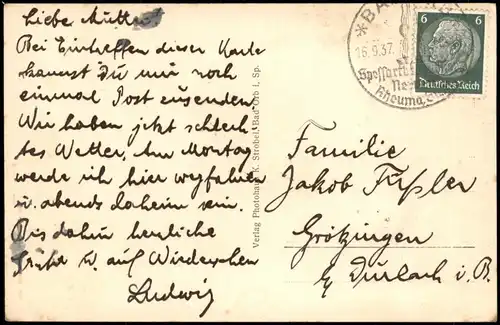 Liebe Mutter!
Bei Eintreffen dieser Karte
kannst Du mir noch
einmal Post zusenden.
Wir haben jetzt schlech-
tes Wetter. Am Montag
werde ich hier wegfahren
u. abends daheim sein.
Bis dahin herzliche
Grüße u. auf Wiedersehen
Ludwig
Verlag Photohaus K. Strobel, Bad Orb i. Sp.
* BAD
16.9.37.
Spessart
Rheuma,
6 6
Deutsches Reich
Familie
Jakob
Grötzingen
b/ Durlach i. B.